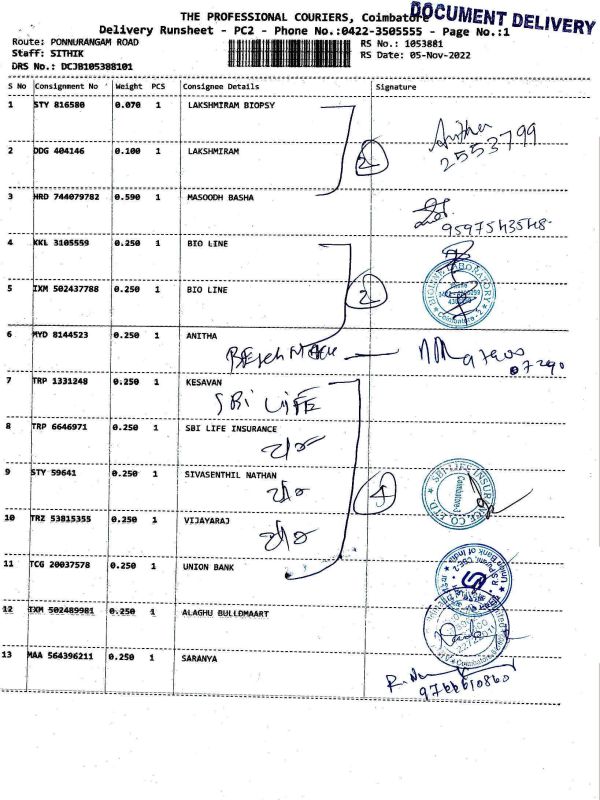 THE PROFESSIONAL COURIERS, Coimbatore
DOCUMENT DELIVERY
Delivery Runsheet - PC2 - Phone No.:0422-3505555 - Page No.:1
Route: PONNURANGAM ROAD RS No.: 1053881
Staff: SITHIK RS Date: 05-Nov-2022
DRS No.: DCJB105388101
S No Consignment No Weight PCS Consignee Details Signature
1 STY 816580 0.070 1 LAKSHMIRAM BIOPSY
Anitha
2553799
2 DDG 404146 0.100 1 LAKSHMIRAM
2
3 HRD 744079782 0.590 1 MASOODH BASHA
9597543548-
4 KKL 3105559 0.250 1 BIO LINE
5 IXM 502437788 0.250 1 BIO LINE
2
BIOLINE LABORATORY
Coimbatore-2
6 MYD 8144523 0.250 1 ANITHA
7 TRP 1331248 0.250 1 KESAVAN
SBI LIFE
8 TRP 6646971 0.250 1 SBI LIFE INSURANCE
9 STY 59641 0.250 1 SIVASENTHIL NATHAN
4
SBI-LIFE INSURANCE CO. LTD.
Coimbatore
10 TRZ 53815355 0.250 1 VIJAYARAJ
11 TCG 20037578 0.250 1 UNION BANK
Union Bank of India
12 IXM 502489981 0.250 1 ALAGHU BULLDMAART
Coimbatore
13 MAA 564396211 0.250 1 SARANYA